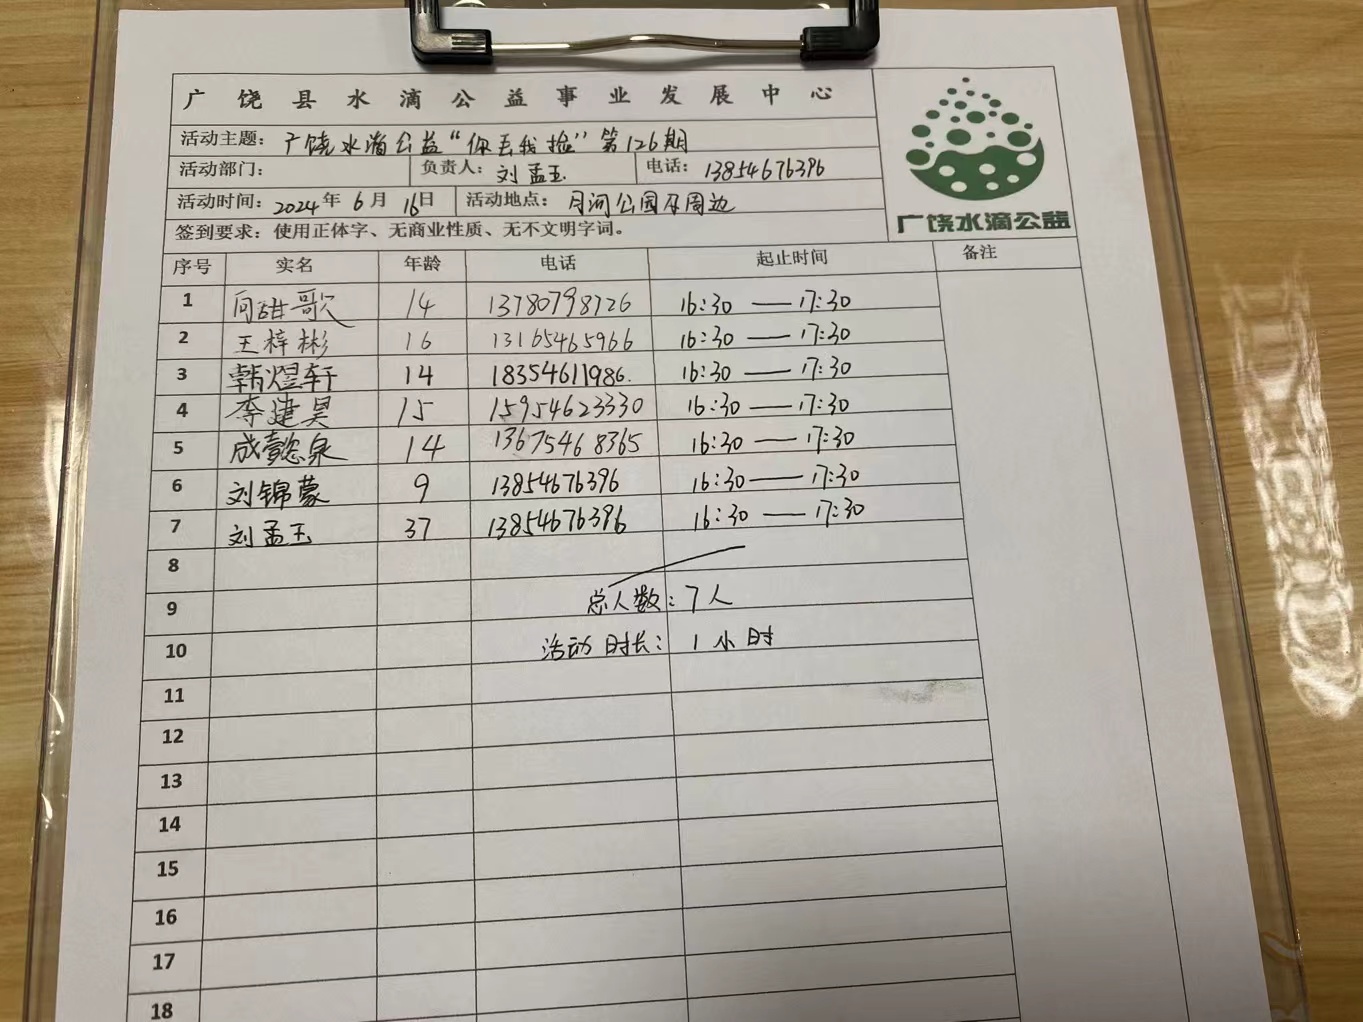 广饶县水滴公益事业发展中心
活动主题: 广饶水滴公益“你丢我捡”第126期
活动部门: 负责人: 刘孟玉 电话: 13854676396
活动时间: 2024年6月16日 活动地点: 月河公园及周边
签到要求: 使用正体字、无商业性质、无不文明字词。
广饶水滴公益
序号 实名 年龄 电话 起止时间 备注
1 向甜歌 14 13780798726 16:30——17:30
2 王梓彬 16 13165465966 16:30——17:30
3 韩煜轩 14 18354611986. 16:30——17:30
4 李建昊 15 15954623330 16:30——17:30
5 成懿泉 14 13675468365 16:30——17:30
6 刘锦蒙 9 13854676396 16:30——17:30
7 刘孟玉 37 13854676396 16:30——17:30
8
9 总人数: 7人
10 活动时长: 1小时
11
12
13
14
15
16
17
18